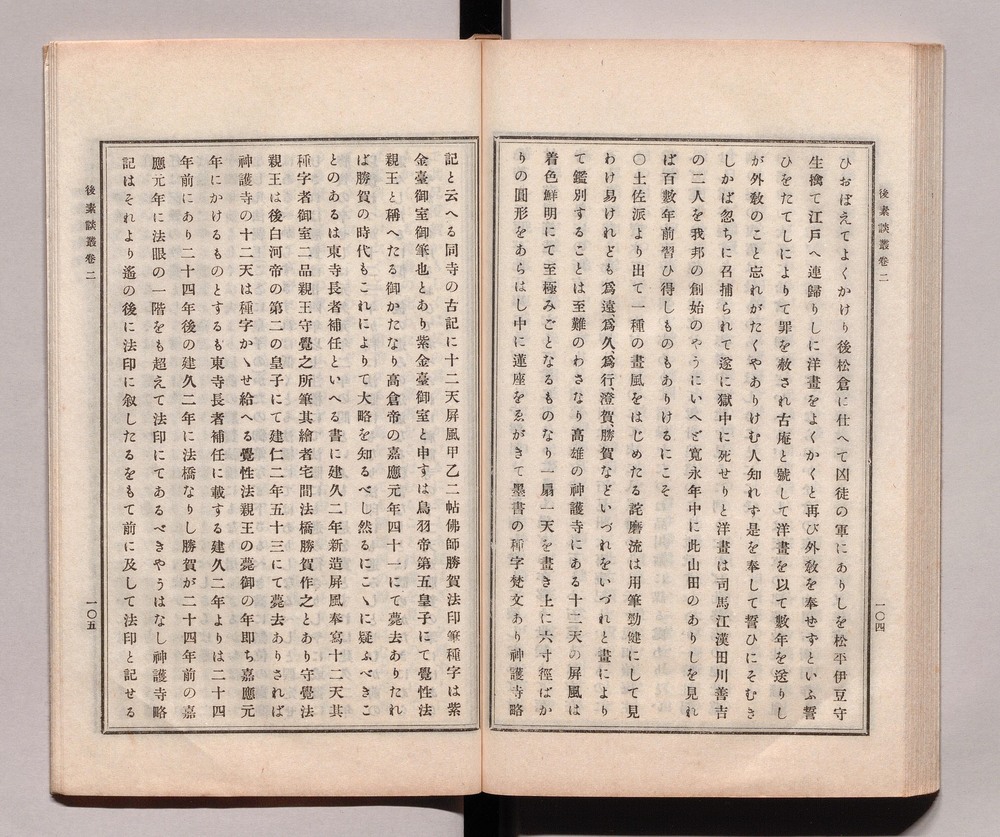 後素談叢卷二
一〇四
ひおぼえてよくかけり後松倉に仕へて凶徒の軍にありしを松平伊豆守
生擒て江戸へ連歸りしに洋畫をよくかくと再び外敎を奉せずといふ誓
ひをたてしによりて罪を赦され古庵と號して洋畫を以て數年を送りし
が外敎のこと忘れがたくやありけむ人知れず是を奉して誓ひにそむき
しかば忽ちに召捕られて遂に獄中に死せりと洋畫は司馬江漢田川善吉
の二人を我邦の創始のやうにいへど寛永年中に此山田のありしを見れ
ば百數年前習ひ得しものもありけるにこそ
〇土佐派より出て一種の畫風をはじめたる詫磨流は用筆勁健にして見
わけ易けれども爲遠爲久爲行澄賀、勝賀などいづれをいづれと畫により
て鑑別することは至難のわさなり高雄の神護寺にある十二天の屏風は
着色鮮明にて至極みごとなるものなり一扇一天を畫き上に六寸徑ばか
りの圓形をあらはし中に蓮座をゑがきて墨書の種字梵文あり神護寺略
記と云へる同寺の古記に十二天屏風甲乙二帖佛師勝賀法印筆種字は紫
金臺御室御筆也とあり紫金臺御室と申すは鳥羽帝第五皇子にて覺性法
親王と稱へたる御かたなり高倉帝の嘉應元年四十一にて薨去ありたれ
ば勝賀の時代もこれによりて大略を知るべし然るにこヽに疑ふべきこ
とのあるは東寺長者補任といへる書に建久二年新造屏風奉寫十二天其
種字者御室二品親王守覺之所筆其繪者宅間法橋勝賀作之とあり守覺法
親王は後白河帝の第二の皇子にて建仁二年五十三にて薨去ありされば
神護寺の十二天は種字かヽせ給へる覺性法親王の薨御の年即ち嘉應元
年にかけるものとするも東寺長者補任に載する建久二年よりは二十四
年前にあり二十四年後の建久二年に法橋なりし勝賀が二十四年前の嘉
應元年に法眼の一階をも超えて法印にてあるべきやうはなし神護寺略
記はそれより遙の後に法印に叙したるをもて前に及して法印と記せる
後素談叢卷二
一〇五